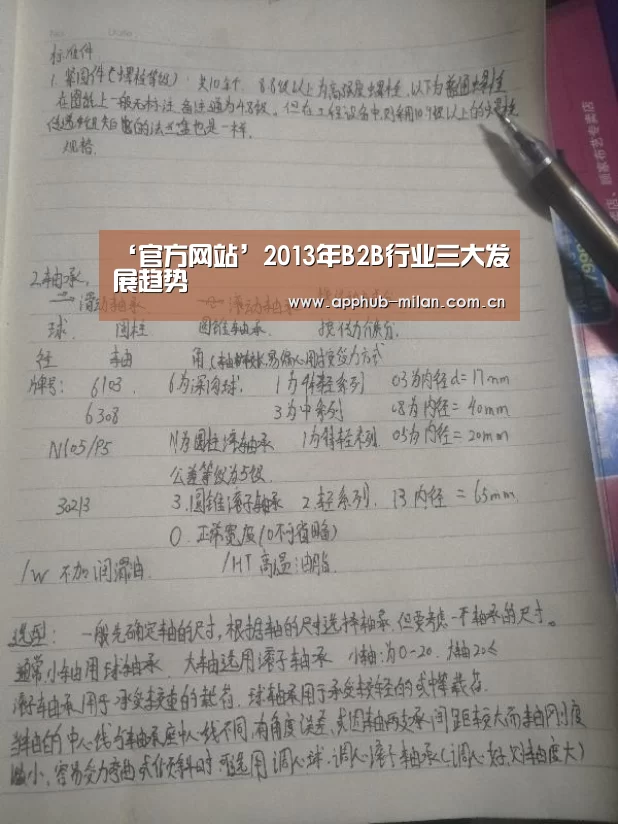 标准件
1. 紧固件(螺栓等级)：共10多个. 8.8级以上为高强度螺栓, 以下为普通螺栓
在图纸上一般无标注, 备注通为4.8级. 但在工程设备中, 则采用10.9级以上的
也是一样.
规格.
‘官方网站’2013年B2B行业三大发
展趋势
www.apphub-milan.com.cn
2.轴承.
滑动轴承 滚动轴承
球. 圆柱 圆锥轴承. 按受力
径 轴 角
牌号： 6103. 6为深沟球. 1为特轻系列 03为内径d=17mm
6308 3为中系列 08为内径=40mm
N105/P5 N为圆柱滚轴承 1为特轻系列. 05为内径=20mm
公差等级为5级.
30213 3.圆锥滚子轴承 2.轻系列. 13.内径=65mm
0.正常宽度(0不可省略)
/W 不加润滑油. /HT高温油脂.
选型： 一般先确定轴的尺寸, 根据轴的尺寸选择轴承, 但要考虑一下轴承的尺寸。
通常小轴用球轴承. 大轴选用滚子轴承 小轴:为0-20. 大轴20≤
滚子轴承用于承受较重的载荷. 球轴承用于承受较轻的或中等载荷.
当轴的中心线与轴承座中心线不同, 有角度误差, 或因轴两支承间距较大而轴刚度
减小, 容易受力弯曲或倾斜时, 可选用调心球.调心滚子轴承(调心好, 刚度大)